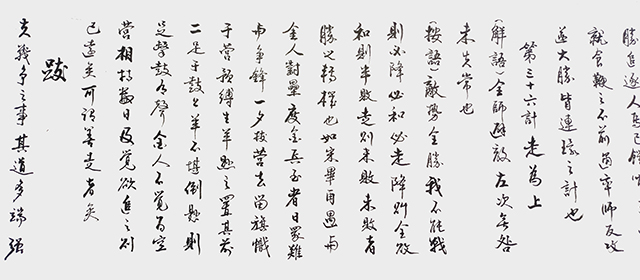 勝追逐人馬已饑
就食鞭之不前遇率師反攻
遂大勝皆連環之計也
第三十六計 走為上
(解語)全師避敵左次無咎
未失常也
(按語)敵勢全勝我不能戰
則必降必和必走降則全敗
和則半敗走則未敗未敗者
勝之轉機也如宋畢再遇與
金人對壘度金兵至者日眾難
與爭鋒一夕拔營去留旗幟
于營豫縛生羊懸之置其前
二足于鼓上羊不堪倒懸則
足擊鼓有聲金人不覺為空
營相持數日及覺欲追之則
已遠矣可謂善走者矣
跋
夫戰爭之事其道多端強